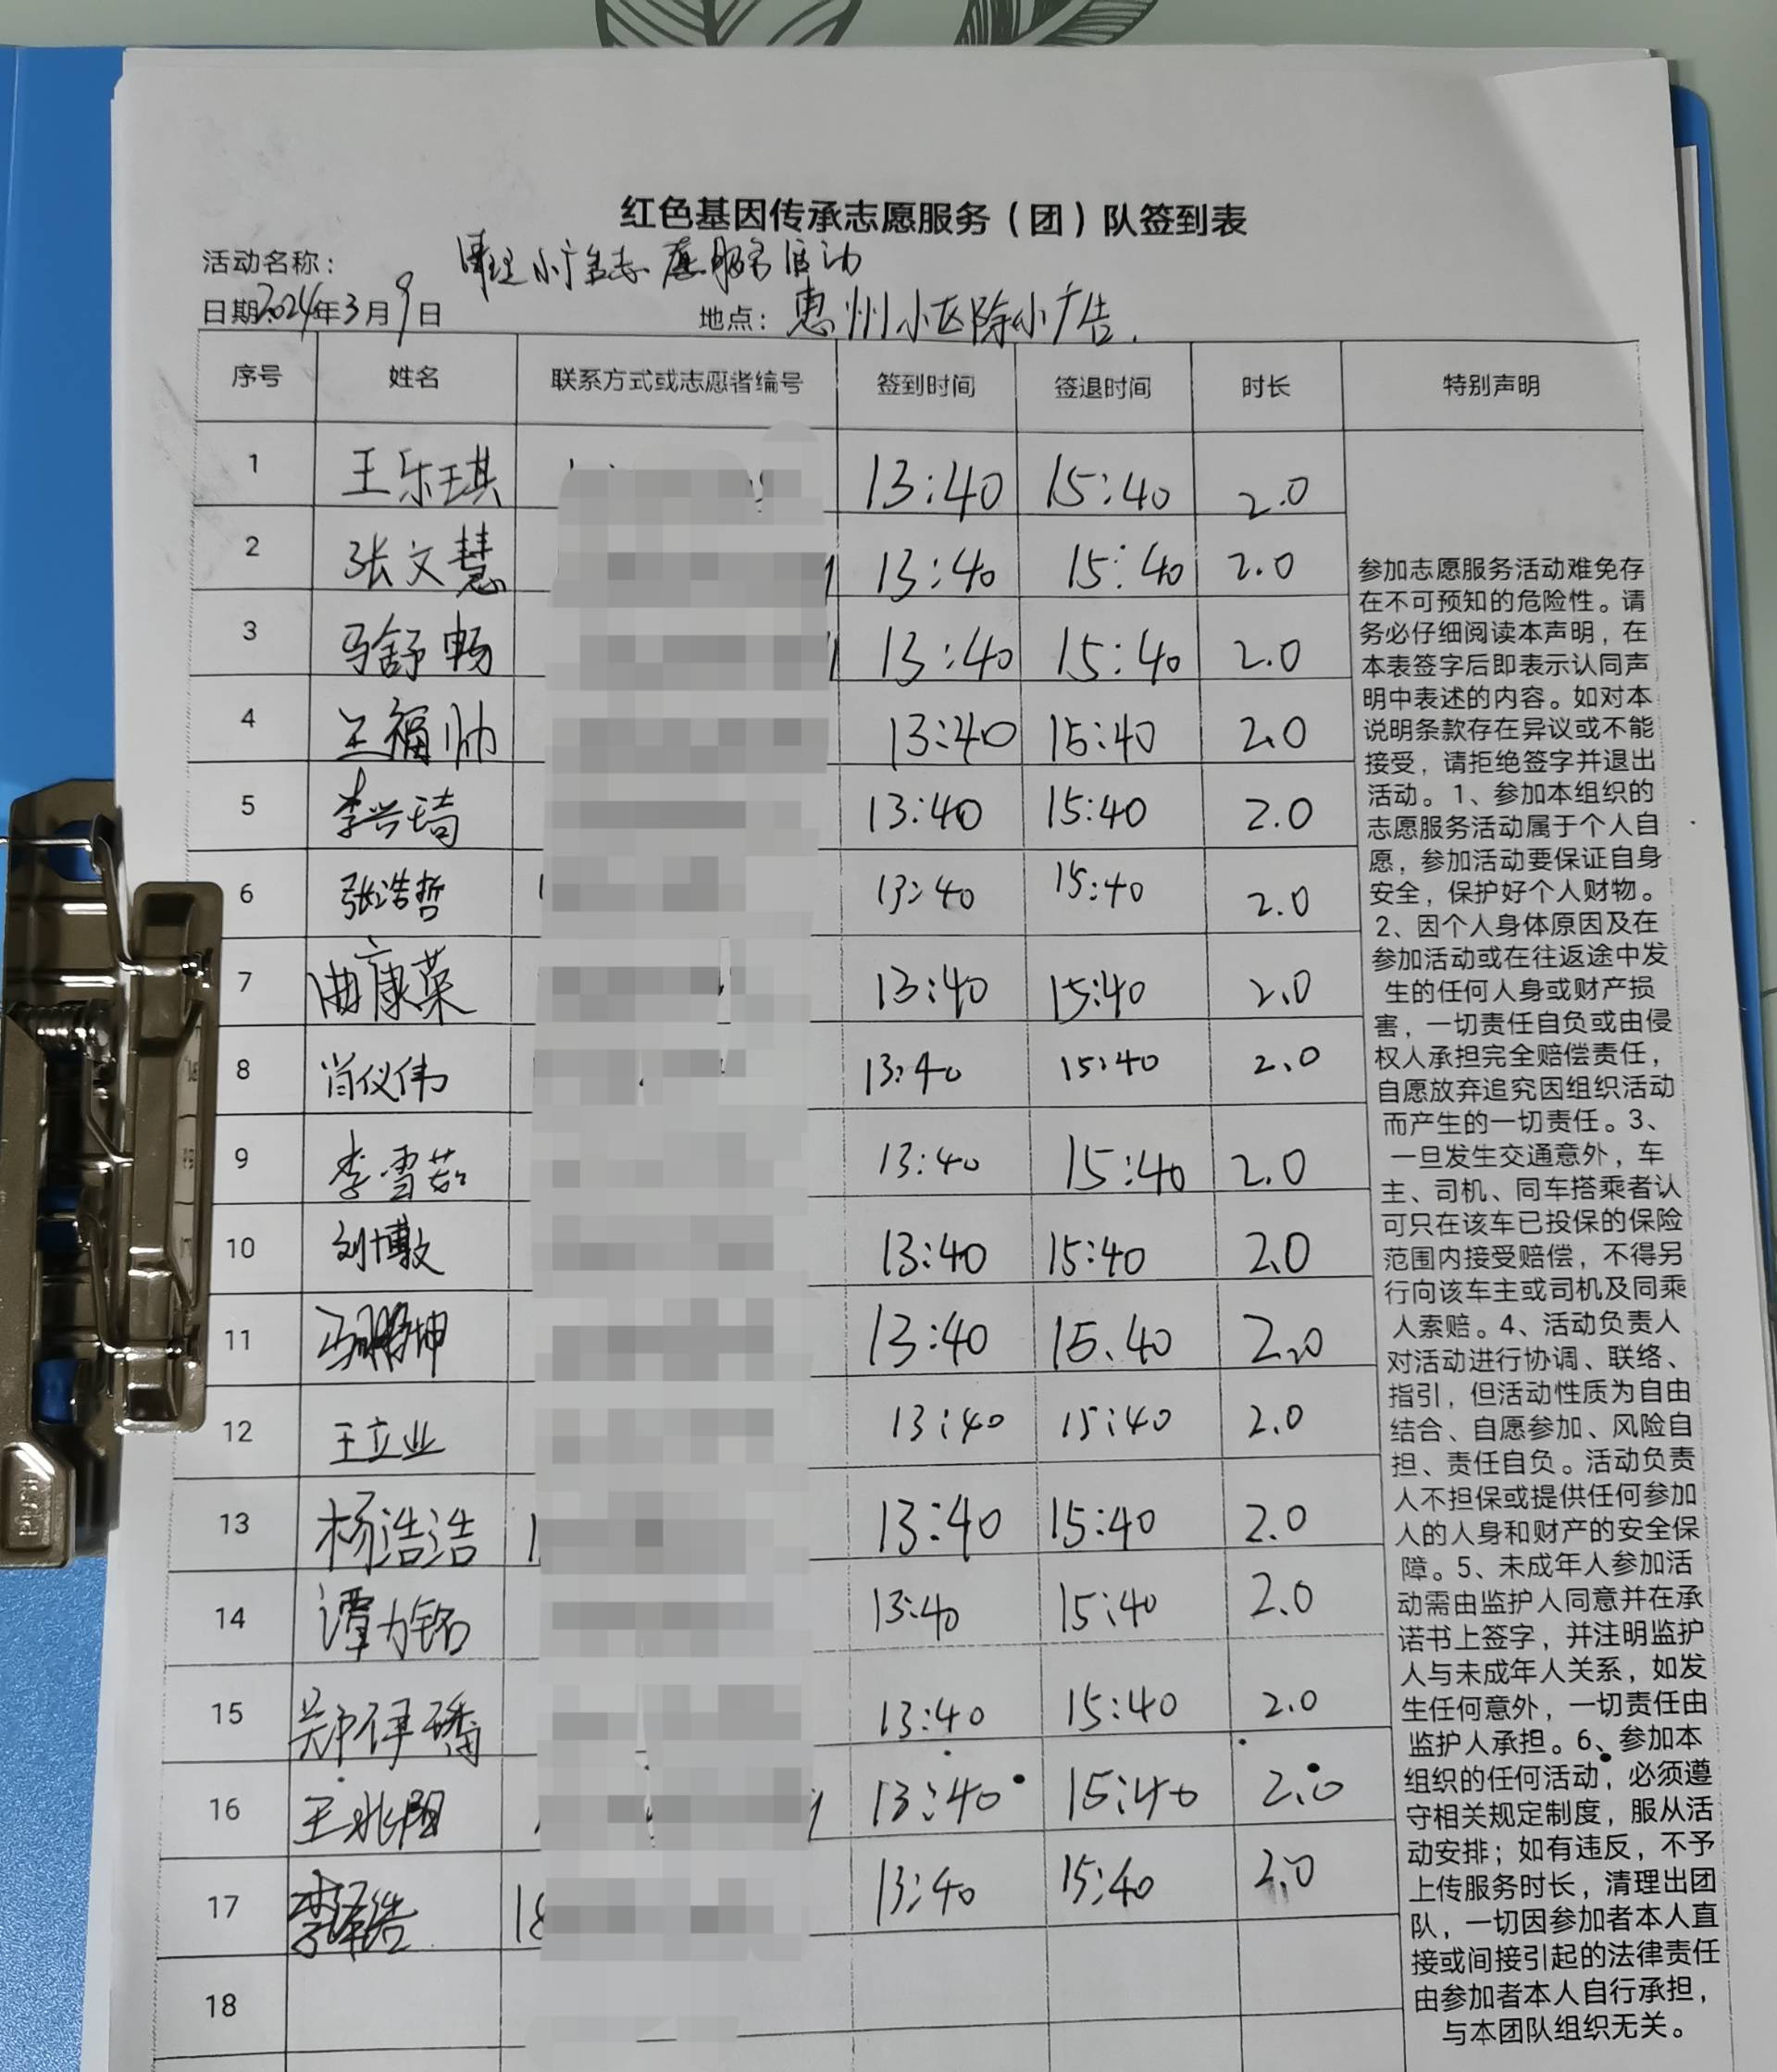 红色基因传承志愿服务（团）队签到表
活动名称： 清理小广告志愿服务活动
日期2024年3月9日 地点：惠州小区除小广告.
序号 姓名 联系方式或志愿者编号 签到时间 签退时间 时长 特别声明
1 王乐琪 13:40 15:40 2.0
2 张文慧 13:40 15:40 2.0
3 马舒畅 13:40 15:40 2.0
4 王福帅 13:40 15:40 2.0
5 李兴琦 13:40 15:40 2.0
6 张浩哲 13:40 15:40 2.0
7 曲康荣 13:40 15:40 2.0
8 肖仪伟 13:40 15:40 2.0
9 李雪茹 13:40 15:40 2.0
10 刘博敏 13:40 15:40 2.0
11 13:40 15.40 2.0
12 王立业 13:40 15:40 2.0
13 杨浩浩 13:40 15:40 2.0
14 谭力铭 13:40 15:40 2.0
15 13:40 15:40 2.0
16 王兆阳 13:40 15:40 2.0
17 李泽浩 18 13:40 15:40 2.0
18
参加志愿服务活动难免存
在不可预知的危险性。请
务必仔细阅读本声明，在
本表签字后即表示认同声
明中表述的内容。如对本
说明条款存在异议或不能
接受，请拒绝签字并退出
活动。1、参加本组织的
志愿服务活动属于个人自
愿，参加活动要保证自身
安全，保护好个人财物。
2、因个人身体原因及在
参加活动或在往返途中发
生的任何人身或财产损
害，一切责任自负或由侵
权人承担完全赔偿责任，
自愿放弃追究因组织活动
而产生的一切责任。3、
一旦发生交通意外，车
主、司机、同车搭乘者认
可只在该车已投保的保险
范围内接受赔偿，不得另
行向该车主或司机及同乘
人索赔。4、活动负责人
对活动进行协调、联络、
指引，但活动性质为自由
结合、自愿参加、风险自
担、责任自负。活动负责
人不担保或提供任何参加
人的人身和财产的安全保
障。5、未成年人参加活
动需由监护人同意并在承
诺书上签字，并注明监护
人与未成年人关系，如发
生任何意外，一切责任由
监护人承担。6、参加本
组织的任何活动，必须遵
守相关规定制度，服从活
动安排；如有违反，不予
上传服务时长，清理出团
队，一切因参加者本人直
接或间接引起的法律责任
由参加者本人自行承担，
与本团队组织无关。